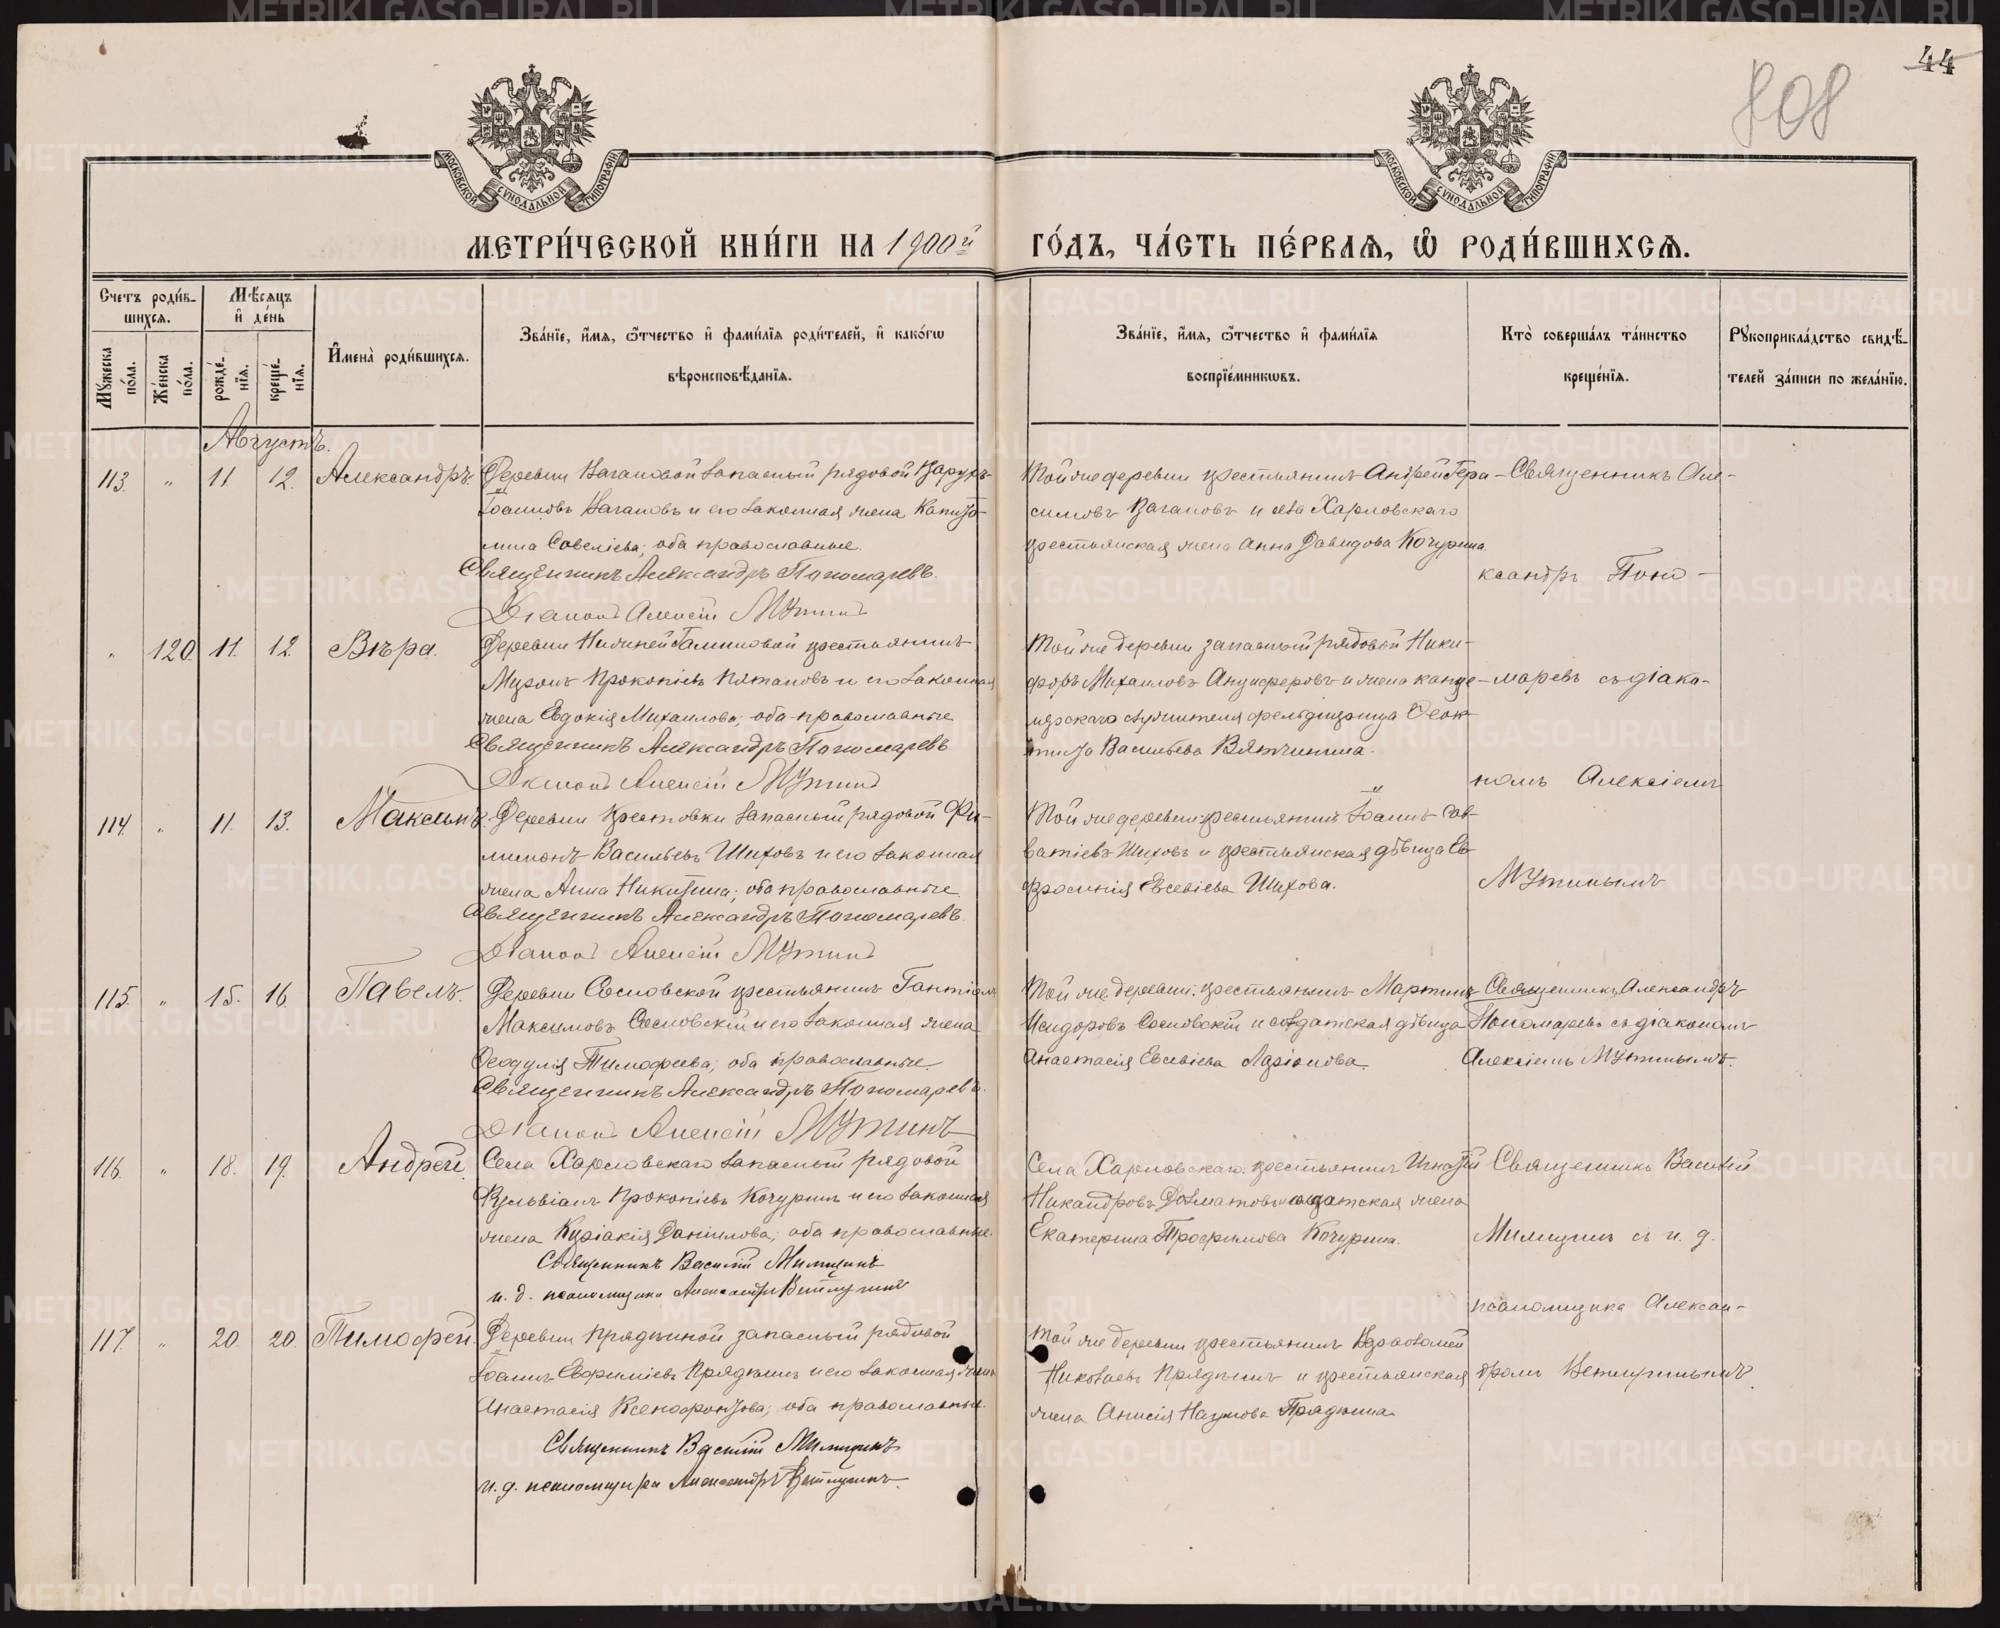 44
808
МОСКОВСКОЙ СУНОДАЛЬНОЙ ТИПОГРАФИИ
МОСКОВСКОЙ СУНОДАЛЬНОЙ ТИПОГРАФИИ
МЕТРИ́ЧЕСКОЙ КНИ́ГИ НА 1900й ГО́ДЪ, ЧА́СТЬ ПЕ́РВАѦ, Ѡ҆ РОДИ́ВШИХСѦ.
Счетъ роди́в-
шихсѧ.
Мѣ́сѧцъ
и҆ де́нь
Мꙋ́жеска
по́ла.
Же́нска
по́ла.
рожде́-
нїѧ.
креще́-
нїѧ.
И҆мена̀ роди́вшихсѧ.
Зва́нїе, и҆́мѧ, ѻ҆́тчество и҆ фами́лїѧ роди́телей, и҆ како́гѡ
вѣроисповѣ́данїѧ.
Зва́нїе, и҆́мѧ, ѻ҆́тчество и҆ фами́лїѧ
воспрїе́мникѡвъ.
Кто̀ соверша́лъ та́инство
креще́нїѧ.
Рꙋкоприкла́дство свидѣ́-
телей за́писи по жела́нїю.
Августъ.
113. " 11. 12. Александръ.
Деревни Вагановой запасный рядовой
Іоанновъ Вагановъ и его законная жена Капито-
лина Савеліева; оба православные.
Священникъ Александръ Пономаревъ.
Діаконъ Алексій Мутинъ
Той же деревни крестьянинъ Андрей Гера-
симовъ Вагановъ и села Харловскаго
крестьянская жена Анна Давидова Кочурина.
Священникъ Але-
ксандръ Поно-
" 120. 11. 12. Вѣра.
Деревни Нижней крестьянинъ
Миронъ Прокопіевъ и его законная
жена Евдокія Михаилова; оба православные
Священникъ Александръ Пономаревъ
Діаконъ Алексій Мутинъ
Той же деревни запасный рядовой Ники-
форъ Михаиловъ Анциферовъ и жена канце-
лярскаго служителя фельдшерица Ѳеок-
тиста Васильева Вятчинина.
маревъ съ діако-
номъ Алексіемъ
114. " 11. 13. Максимъ.
Деревни запасный рядовой Фи-
лимонъ Васильевъ Шиховъ и его законная
жена Анна Никитина; оба православные
Священникъ Александръ Пономаревъ.
Діаконъ Алексій Мутинъ
Той же деревни: крестьянинъ Іоаннъ Сав-
ватіевъ Шиховъ и крестьянская дѣвица Ев-
фросинія Евсевіева Шихова.
Мутинымъ
115. " 15. 16. Павелъ.
Деревни Сосновской крестьянинъ
Максимовъ Сосновскій и его законная жена
Ѳеодулія Тимофеева; оба православные.
Священникъ Александръ Пономаревъ.
Діаконъ Алексій Мутинъ
Той же деревни: крестьянинъ Мартинъ
Исидоровъ Сосновскій и солдатская дѣвица
Анастасія Евсевіева Ларіонова.
Священникъ Александръ
Пономаревъ съ діакономъ
Алексіемъ Мутинымъ.
116. " 18. 19. Андрей.
Села Харловскаго запасный рядовой
Вульвіанъ Прокопіевъ Кочуринъ и его законная
жена Киріакія Даніилова; оба православные.
Священникъ Василій Милицинъ
и. д. псаломщика Александръ Ветлугинъ
Села Харловскаго: крестьянинъ Игнатій
Никандровъ Долматовъ и солдатская жена
Екатерина Трофимова Кочурина.
Священникъ Василій
Милицинъ съ и. д.
псаломщика Алексан-
117. " 20. 20. Тимофей.
Деревни Прядеиной запасный рядовой
Іоаннъ Евфиміевъ Прядеинъ и его законная жена
Анастасія Ксенофонтова; оба православные.
Священникъ Василій Милицинъ
и. д. псаломщика Александръ Ветлугинъ.
Той же деревни крестьянинъ Варфоломей
Николаевъ Прядеинъ и крестьянская
жена Анисія Наумова Прядеина.
дромъ Ветлугинымъ.
METRIKI.GASO-URAL.RU